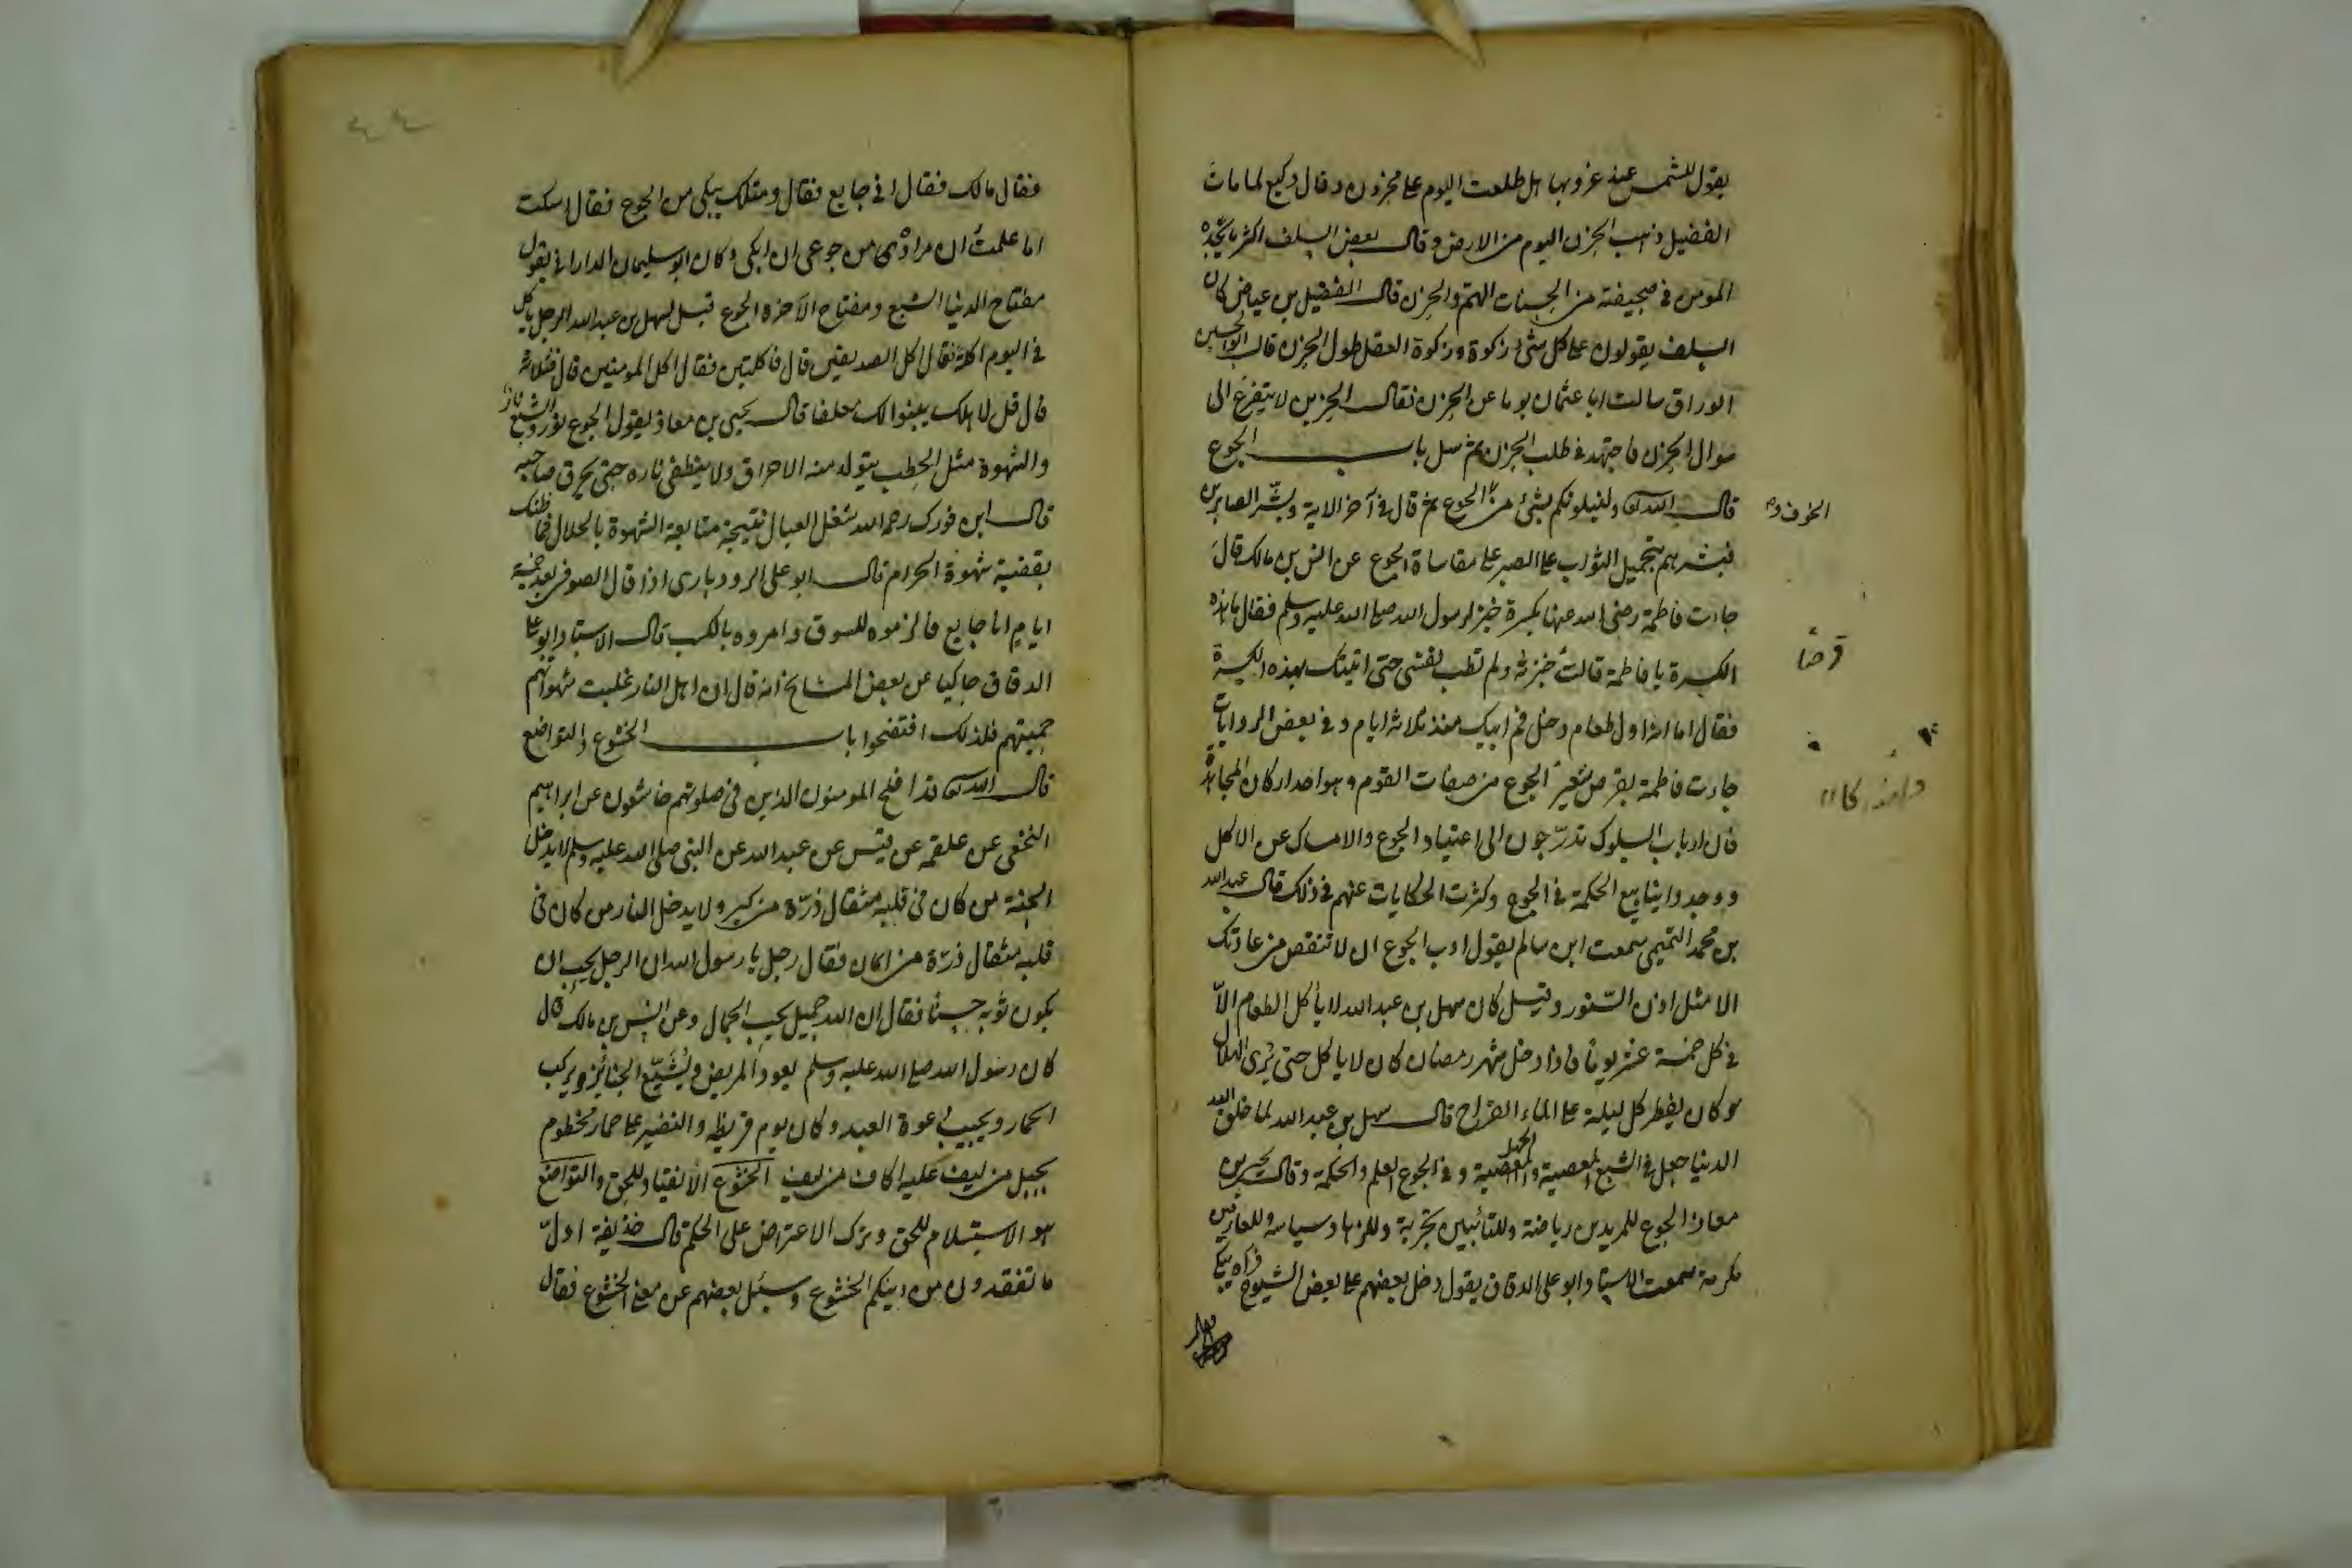 يقول للشمس عند غروبها هل طلعت اليوم على محزون وقال وكيع لما مات
الفضيل ذهب الحزن اليوم من الارض وقال بعض السلف اكثر ما يجده
المومن في صحيفته من الحسنات الهم والحزن قال الفضيل بن عياض كان
السلف يقولون على كل شئ زكوة وزكوة العقل طول الحزن قال ابو الحسين
الوراق سالت ابا عثمان يوما عن الحزن فقال الحزين لا يتفرغ الى
سوال الحزن فاجتهد في طلب الحزن ثم سل باب الجوع
قال الله تع ولنبلونكم بشئ من الجوع ثم قال في آخر الاية وبشر الصابرين
الخوف و
فبشرهم بجميل الثواب على الصبر على مقاساة الجوع عن انس بن مالك قال
جاءت فاطمة رضي الله عنها بكسرة خبز لرسول الله صلى الله عليه وسلم فقال ما هذه
الكسرة يا فاطمة قالت خبزته ولم تطب نفسي حتى اتيتك بهذه الكسرة
قرصا
فقال اما انه اول طعام دخل فم ابيك منذ ثلاثة ايام و في بعض الروايات
جاءت فاطمة بقرص شعير الجوع من صفات القوم وهو احد اركان المجاهدة
فان ارباب السلوك تدرّجون الى اعتياد الجوع والامساك عن الاكل
ووجدوا ينابيع الحكمة في الجوع وكثرت الحكايات عنهم في ذلك قال عبد الله
بن محمد التميمي سمعت ابن سالم يقول ادب الجوع ان لا تنقص من عادتك
الا مثل اذن السنور وقيل كان سهل بن عبد الله لا ياكل الطعام الاّ
في كل خمسة عشر يوما فاذا دخل شهر رمضان كان لا ياكل حتى يرى الهلال
وكان يفطر كل ليلة على الماء القراح قال سهل بن عبد الله لما خلق الله
الدنيا جعل في الشبع المعصية والجهل و في الجوع العلم والحكمة وقال يحيى بن
معاذ الجوع للمريدين رياضة وللتائبين تجربة وللزهاد سياسة وللعارفين
مكرمة سمعت الاستاد ابو على الدقاق يقول دخل بعضهم على بعض الشيوخ فراه يبكي
فقال
٤٤
فقال مالك فقال اني جايع فقال ومثلك يبكي من الجوع فقال اسكت
اما علمت ان مراده من جوعي ان ابكى وكان ابو سليمان الداراني يقول
مفتاح الدنيا الشبع ومفتاح الآخرة الجوع قيل لسهل بن عبد الله الرجل ياكل
في اليوم اكلة فقال اكل الصديقين قال فاكلتين فقال اكل المومنين قال فثلاثة
قال قل لاهلك يبنوا لك معلفا قال يحيى بن معاذ يقول الجوع نور والشبع نار
والشهوة مثل الحطب يتولد منه الاحراق ولا ينطفئ ناره حتى يحرق صاحبه
قال ابن فورك رحمه الله شغل العيال نتيجة متابعة الشهوة بالحلال فما ظنك
بقضية شهوة الحرام قال ابو على الرودبارى اذا قال الصوفي بعد خمسة
ايام انا جايع فالزموه للسوق وامروه بالكسب قال الاستاد ابو على
الدقاق حاكيا عن بعض المشايخ انه قال ان اهل النار غلبت شهواتهم
حميتهم فلذلك افتضحوا باب الخشوع والتواضع
قال الله تع قد افلح المومنون الذين في صلوتهم خاشعون عن ابراهيم
النخعى عن علقمة عن قيس عن عبد الله عن النبى صلى الله عليه وسلم لا يدخل
الجنة من كان في قلبه مثقال ذرّة من كبر ولا يدخل النار من كان في
قلبه مثقال ذرّة من ايمان فقال رجل يا رسول الله ان الرجل يحب ان
يكون ثوبه حسنًا فقال ان الله جميل يحب الجمال وعن انس بن مالك قال
كان رسول الله صلى الله عليه وسلم يعود المريض ويُشيّع الجنائز ويركب
الحمار ويجيب دعوة العبد وكان يوم قريظه والنضير على حمار مخطوم
بحبل من ليف عليه اكاف من ليف الخشوع الانقياد للحق والتواضع
هو الاستسلام للحق وترك الاعتراض على الحكم قال حذيفة اول
ما تفقدون من دينكم الخشوع وسئل بعضهم عن معنى الخشوع فقال